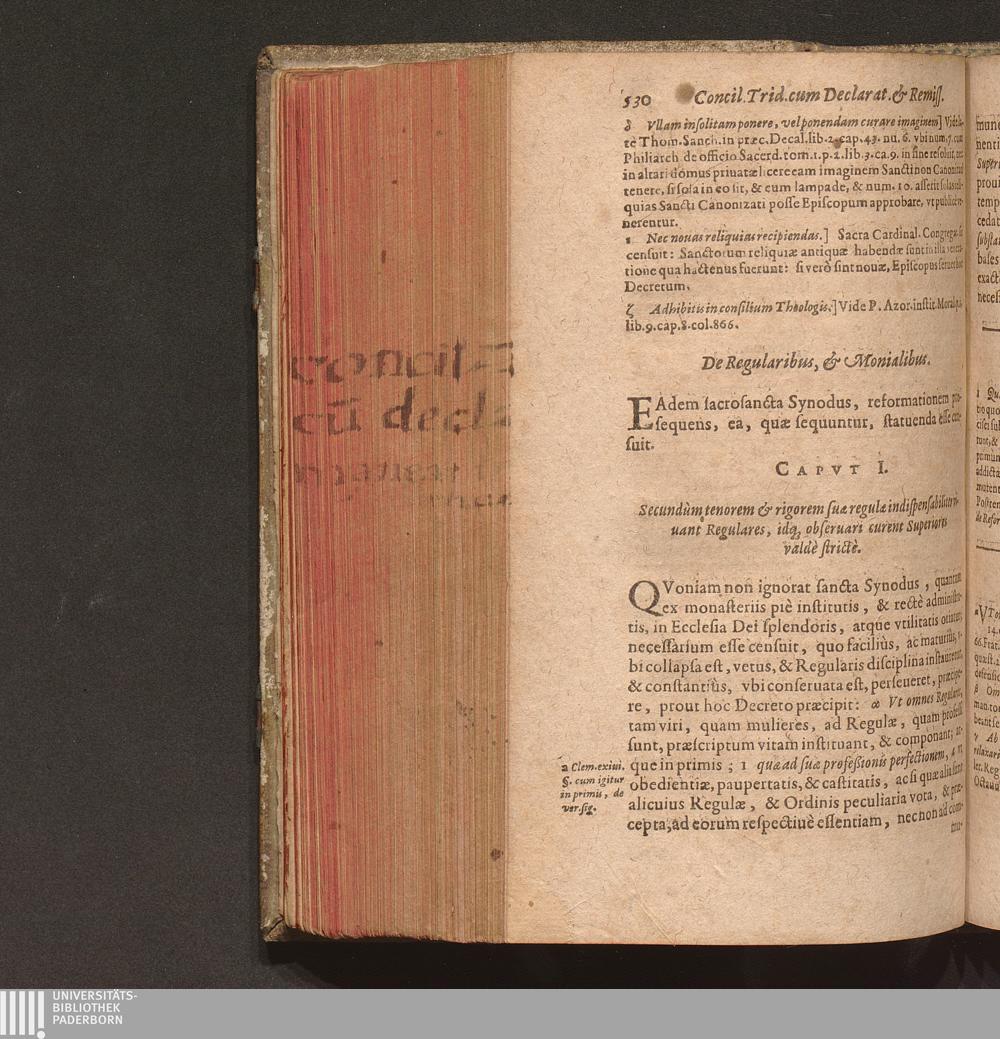 530 Concil. Trid. cum Declarat. & Remiss.
δ Vllam insolitam ponere, vel ponendam curare imaginem]
te Thom. Sanch. in præc. Decal. lib. 2. cap. 43. nu. 6. vbi num. 7. cum
Philiarch de officio Sacerd. tom. 1. p. 2. lib. 3. ca. 9. in fine resoluit, nec
in altari domus priuatæ licere eam imaginem Sancti non Canonizati
tenere, si sola in eo sit, & cum lampade, & num. 10. asserit solas reli-
quias Sancti Canonizati posse Episcopum approbare, vt publicè ve-
nerentur.
Nec nouas reliquias recipiendas.] Sacra Cardinal. Congregat.
censuit: Sanctorum reliquiæ antiquæ habendæ sunt in illa venera-
tione qua hactenus fuerunt: si verò sint nouæ, Episcopus seruet hoc
Decretum.
ζ Adhibitis in consilium Theologis.] Vide P. Azor. instit. Moral. p. 2.
lib. 9. cap. 8. col. 866.
De Regularibus, & Monialibus.
EAdem sacrosancta Synodus, reformationem pro-
sequens, ea, quæ sequuntur, statuenda esse cen-
suit.
CAPVT I.
Secundùm tenorem & rigorem suæ regulæ indispensabiliter vi-
uant Regulares, idq; obseruari curent Superiores
valdè strictè.
QVoniam non ignorat sancta Synodus, quantum
ex monasteriis piè institutis, & rectè administra-
tis, in Ecclesia Dei splendoris, atque vtilitatis oriatur,
necessarium esse censuit, quo faciliùs, ac maturiùs, v-
bi collapsa est, vetus, & Regularis disciplina instauretur,
& constantiùs, vbi conseruata est, perseueret, præcipe-
re, prout hoc Decreto præcipit: α Vt omnes Regulares,
tam viri, quam mulieres, ad Regulæ, quam professi
sunt, præscriptum vitam instituant, & componant; at-
que in primis; 1 quæ ad suæ professionis perfectionem, a vt
obedientiæ, paupertatis, & castitatis, ac si quæ alia sunt
alicuius Regulæ, & Ordinis peculiaria vota, & præ-
cepta, ad eorum respectiuè essentiam, necnon ad com-
mu-
a Clem. exiui.
§. cum igitur
in primis, de
ver. sig.
concil
cū decla
UNIVERSITÄTS-
BIBLIOTHEK
PADERBORN